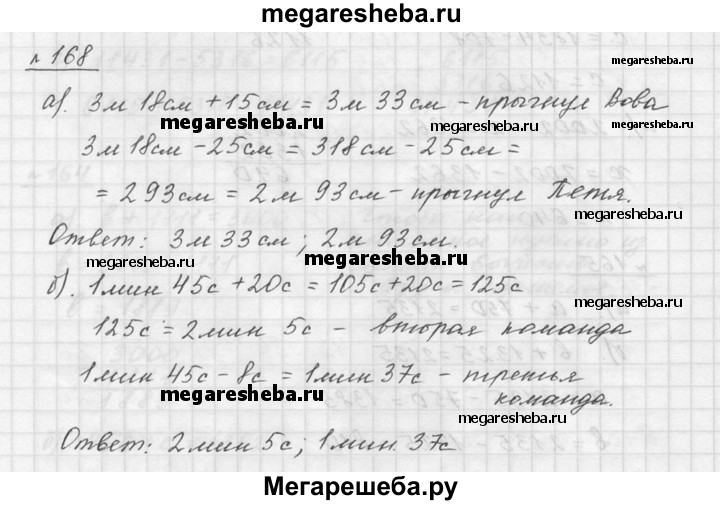 megaresheba.ru
№ 168
а). 3м 18см + 15см = 3м 33см - прыгнул Вова
megaresheba.ru megaresheba.ru
3м 18см - 25см = 318см - 25см =
= 293см = 2м 93см - прыгнул Петя.
megaresheba.ru
Ответ: 3м 33см; 2м 93см.
megaresheba.ru megaresheba.ru
б). 1мин 45с + 20с = 105с + 20с = 125с
megaresheba.ru
125с = 2мин 5с - вторая команда
1мин 45с - 8с = 1мин 37с - третья
megaresheba.ru
команда.
megaresheba.ru
Ответ: 2мин 5с; 1мин 37с
Мегарешеба.ру